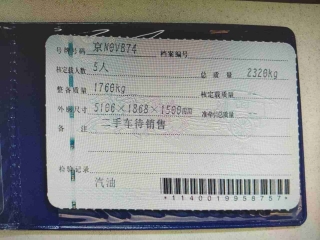 号牌号码 京N9VB74 档案编号
核定载人数 5人 总质量 2320kg
整备质量 1760kg 核定载质量
外廓尺寸 5106×1868×1500mm 准牵引总质量
备注 二手车待销售
检验记录
汽油
*1140019958757*